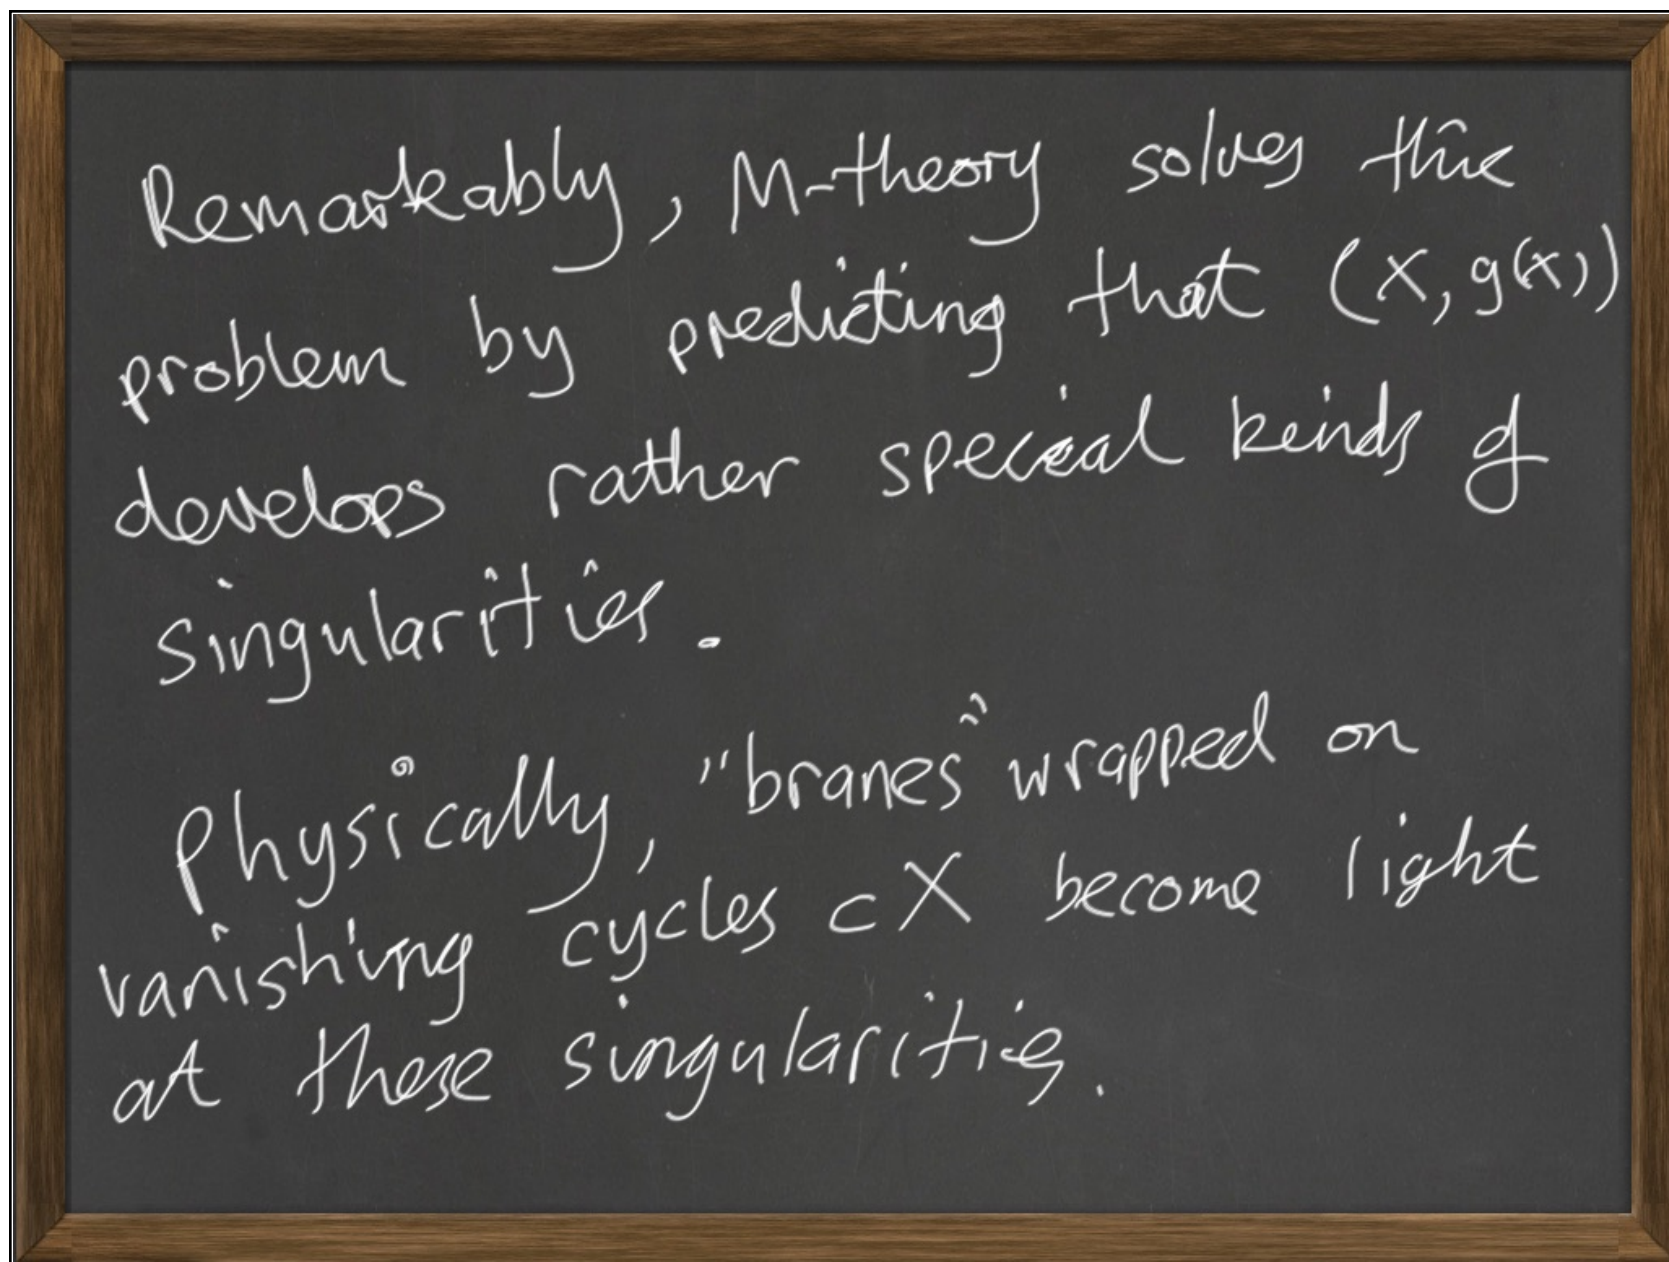 Remarkably, M-theory solves this
problem by predicting that (X, g(X))
develops rather special kinds of
singularities.
Physically, "branes" wrapped on
vanishing cycles ⊂ X become light
at these singularities.